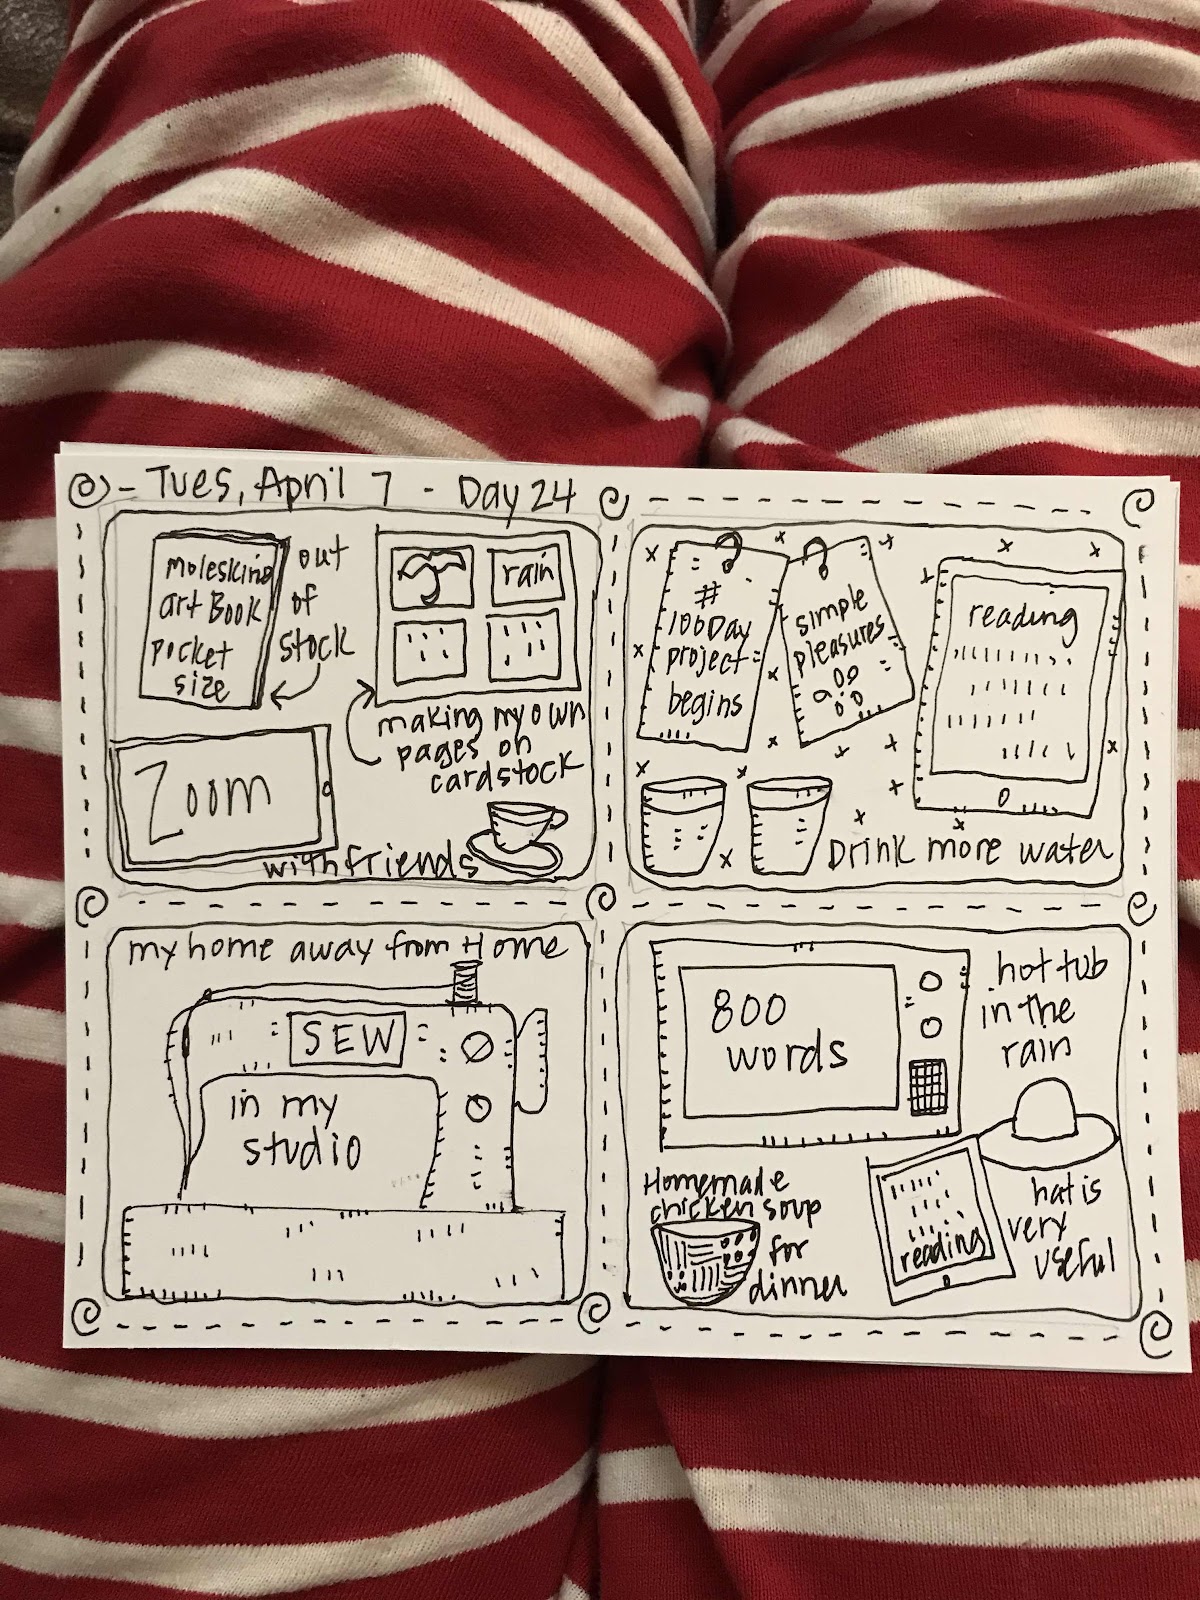 Tues, April 7 - Day 24
Moleskine
art Book
pocket
size
out
of
stock
rain
making my own
pages on
cardstock
Zoom
with friends
#
100Day
project
begins
simple
pleasures
reading
Drink more water
my home away from Home
SEW
in my
studio
800
words
hot tub
in the
rain
hat is
very
useful
Homemade
chicken soup
for
dinner
reading